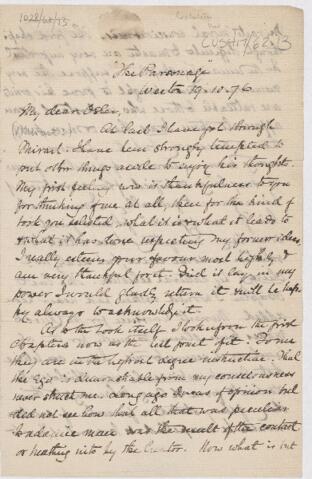 CUS417/62.3
"The Parsonage"
Weston 19.10.76
My dear Osler,
At last I have got through
Mivart. I have been strongly tempted to
put other things aside to enjoy his thought.
My first feeling now is thankfulness to you
for thinking of me at all, then for the kind of
book you selected, what it is & what it leads to
& what it has done respecting my former ideas.
I really esteem your favour most highly &
am very thankful for it. Did it lay in my
power I would gladly return it & will be happy
by always to acknowledge it.
As to the book itself I look upon the first
chapters now as the best point of it. To me
they are in the highest degree instructive. That
the Ego is demonstrable from my consciousness
never struck me. Long ago I was of opinion but
did not see how that all that was peculiar
to adamic man was the result of the contact
or breathing into by the Creator. Now what is but